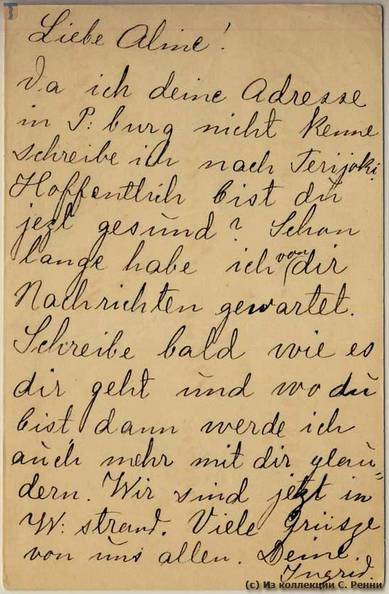 Liebe Aline!
Da ich deine Adresse
in P: burg nicht kenne
schreibe ich nach Terijoki.
Hoffentlich bist du
jezt gesund? Schon
lange habe ich von dir
Nachrichten gewartet.
Schreibe bald wie es
dir geht und wo du
bist, dann werde ich
auch mehr mit dir plau-
dern. Wir sind jetzt in
W: strand. Viele Grüsze
von uns allen. Deine
Ingrid.
(c) Из коллекции С. Ренни